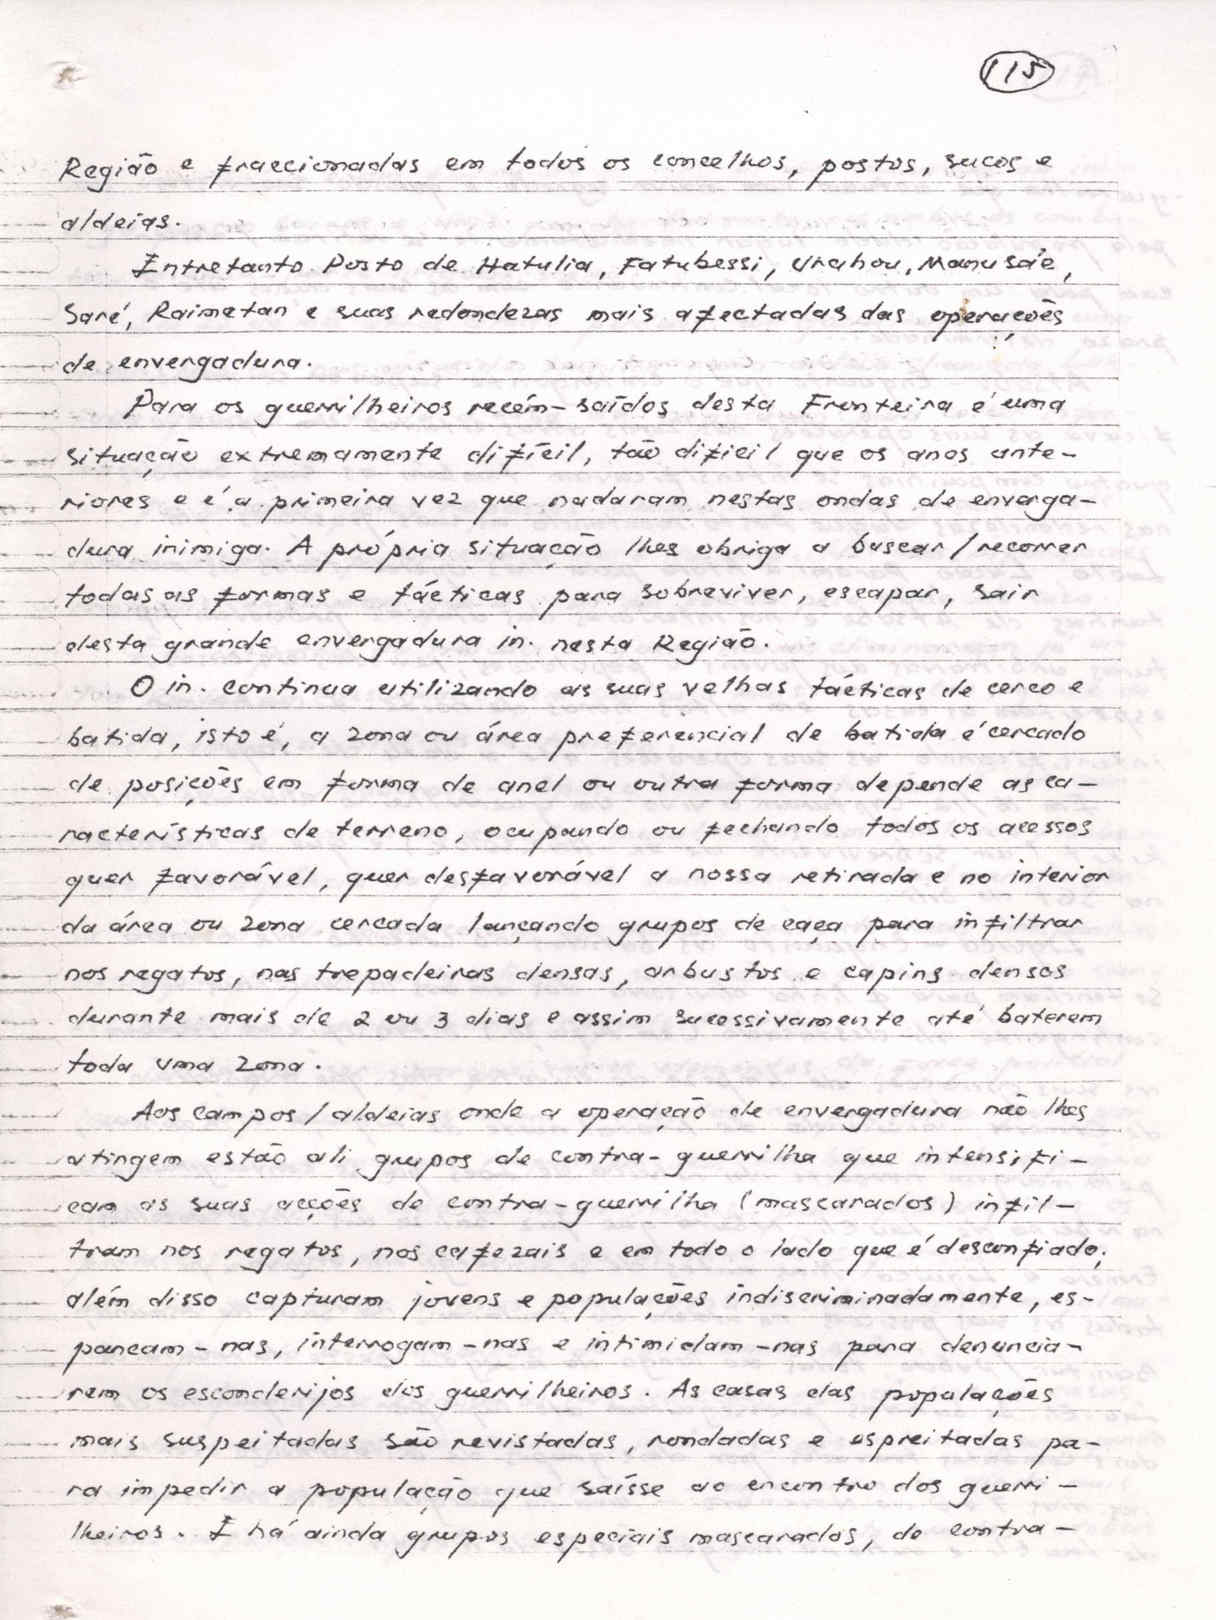 115
Região e fraccionadas em todos os concelhos, postos, sucos e
aldeias.
Entretanto Posto de Hatulia, Fatubessi, Urahou, Manusáe,
Saré, Raimetan e suas redondezas mais afectadas das operações
de envergadura.
Para os guerrilheiros recém-saídos desta Fronteira é uma
situação extremamente difícil, tão dificil que os anos ante-
riores e é a primeira vez que nadaram nestas ondas de enverga-
dura inimiga. A própria situação lhes obriga a buscar/recorrer
todas as formas e tácticas para sobreviver, escapar, sair
desta grande envergadura in. nesta Região.
O in. continua utilizando as suas velhas tácticas de cerco e
batida, isto é, a zona ou área preferencial de batida é cercado
de posições em forma de anel ou outra forma depende as ca-
racterísticas de terreno, ocupando ou fechando todos os acessos
quer favorável, quer desfavorável a nossa retirada e no interior
da área ou zona cercada lançando grupos de caça para infiltrar
nos regatos, nas trepadeiras densas, arbustos e capins densos
durante mais de 2 ou 3 dias e assim sucessivamente até baterem
toda uma zona.
Aos campos/aldeias onde a operação de envergadura não lhes
atingem estão ali grupos de contra-guerrilha que intensifi-
cam as suas acções de contra-guerrilha (mascarados) infil-
tram nos regatos, nos cafezais e em todo o lado que é desconfiado;
além disso capturam jovens e populações indiscriminadamente, es-
pancam-nas, interrogam-nas e intimidam-nas para denuncia-
rem os esconderijos dos guerrilheiros. As casas das populações
mais suspeitadas são revistadas, rondadas e espreitadas pa-
ra impedir a população que saísse ao encontro dos guerri-
lheiros. E há ainda grupos especiais mascarados, de contra-